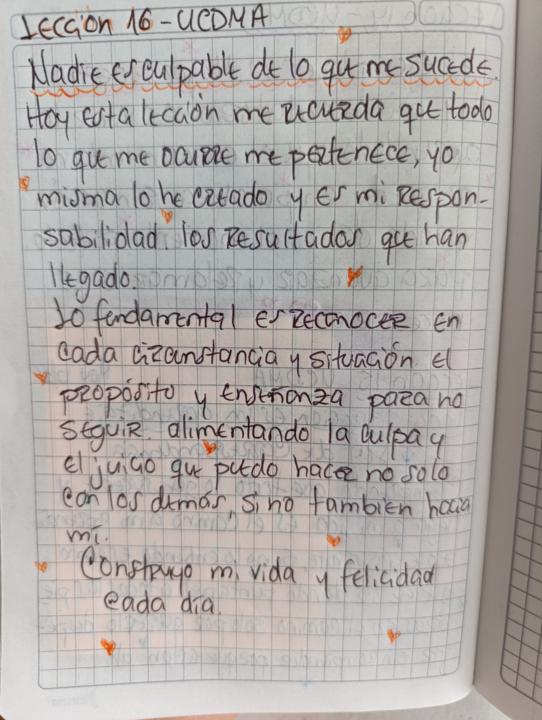 Lección 16 - UCDMA
Nadie es culpable de lo que me sucede.
Hoy esta lección me recuerda que todo
lo que me ocurre me pertenece, yo
misma lo he creado y es mi Respon-
sabilidad los resultados que han
llegado.
Lo fundamental es reconocer en
cada circunstancia y situación el
propósito y enseñanza para no
seguir alimentando la culpa y
el juicio que puedo hacer no solo
con los demás, si no tambien hacia
mí.
Construyo mi vida y felicidad
cada día.